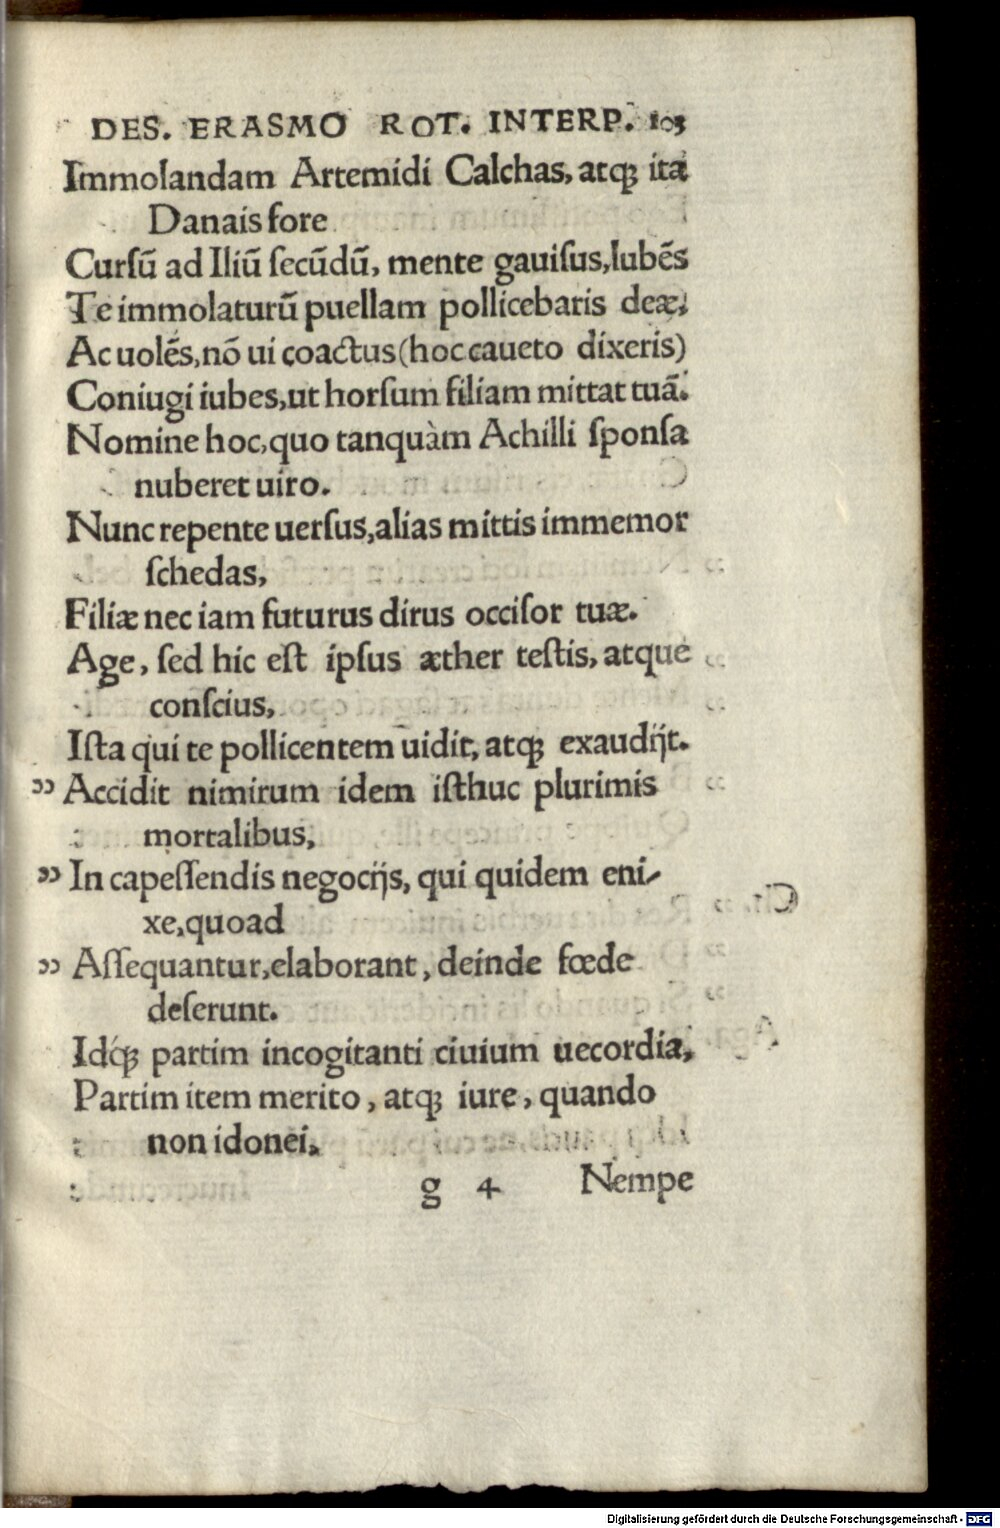 DES. ERASMO ROT. INTERP. 103
Immolandam Artemidi Calchas, atqꝫ ita
Danais fore
Cursũ ad Iliũ secũdũ, mente gauisus, lubẽs
Te immolaturũ puellam pollicebaris deæ,
Ac uolẽs, nõ ui coactus (hoc caueto dixeris)
Coniugi iubes, ut horsum filiam mittat tuã.
Nomine hoc, quo tanquàm Achilli sponsa
nuberet uiro.
Nunc repente uersus, alias mittis immemor
schedas,
Filiæ nec iam futurus dirus occisor tuæ.
Age, sed hic est ipsus æther testis, atque
conscius,
Ista qui te pollicentem uidit, atqꝫ exaudijt.
„ Accidit nimirum idem isthuc plurimis
mortalibus,
„ In capessendis negocijs, qui quidem eni-
xe, quoad
„ Assequantur, elaborant, deinde fœde
deserunt.
Idq́ꝫ partim incogitanti ciuium uecordia,
Partim item merito, atqꝫ iure, quando
non idonei,
g 4 Nempe
Digitalisierung gefördert durch die Deutsche Forschungsgemeinschaft - DFG